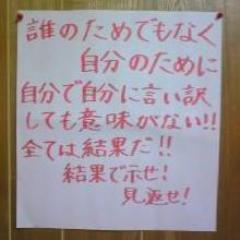 誰のためでもなく
自分のために
自分で自分に言い訳
しても意味がない!!
全ては結果だ!!
結果で示せ!
見返せ!